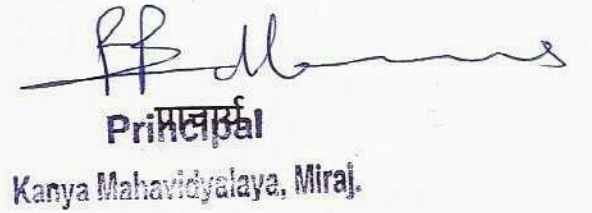 प्राचार्य
Principal
Kanya Mahavidyalaya, Miraj.